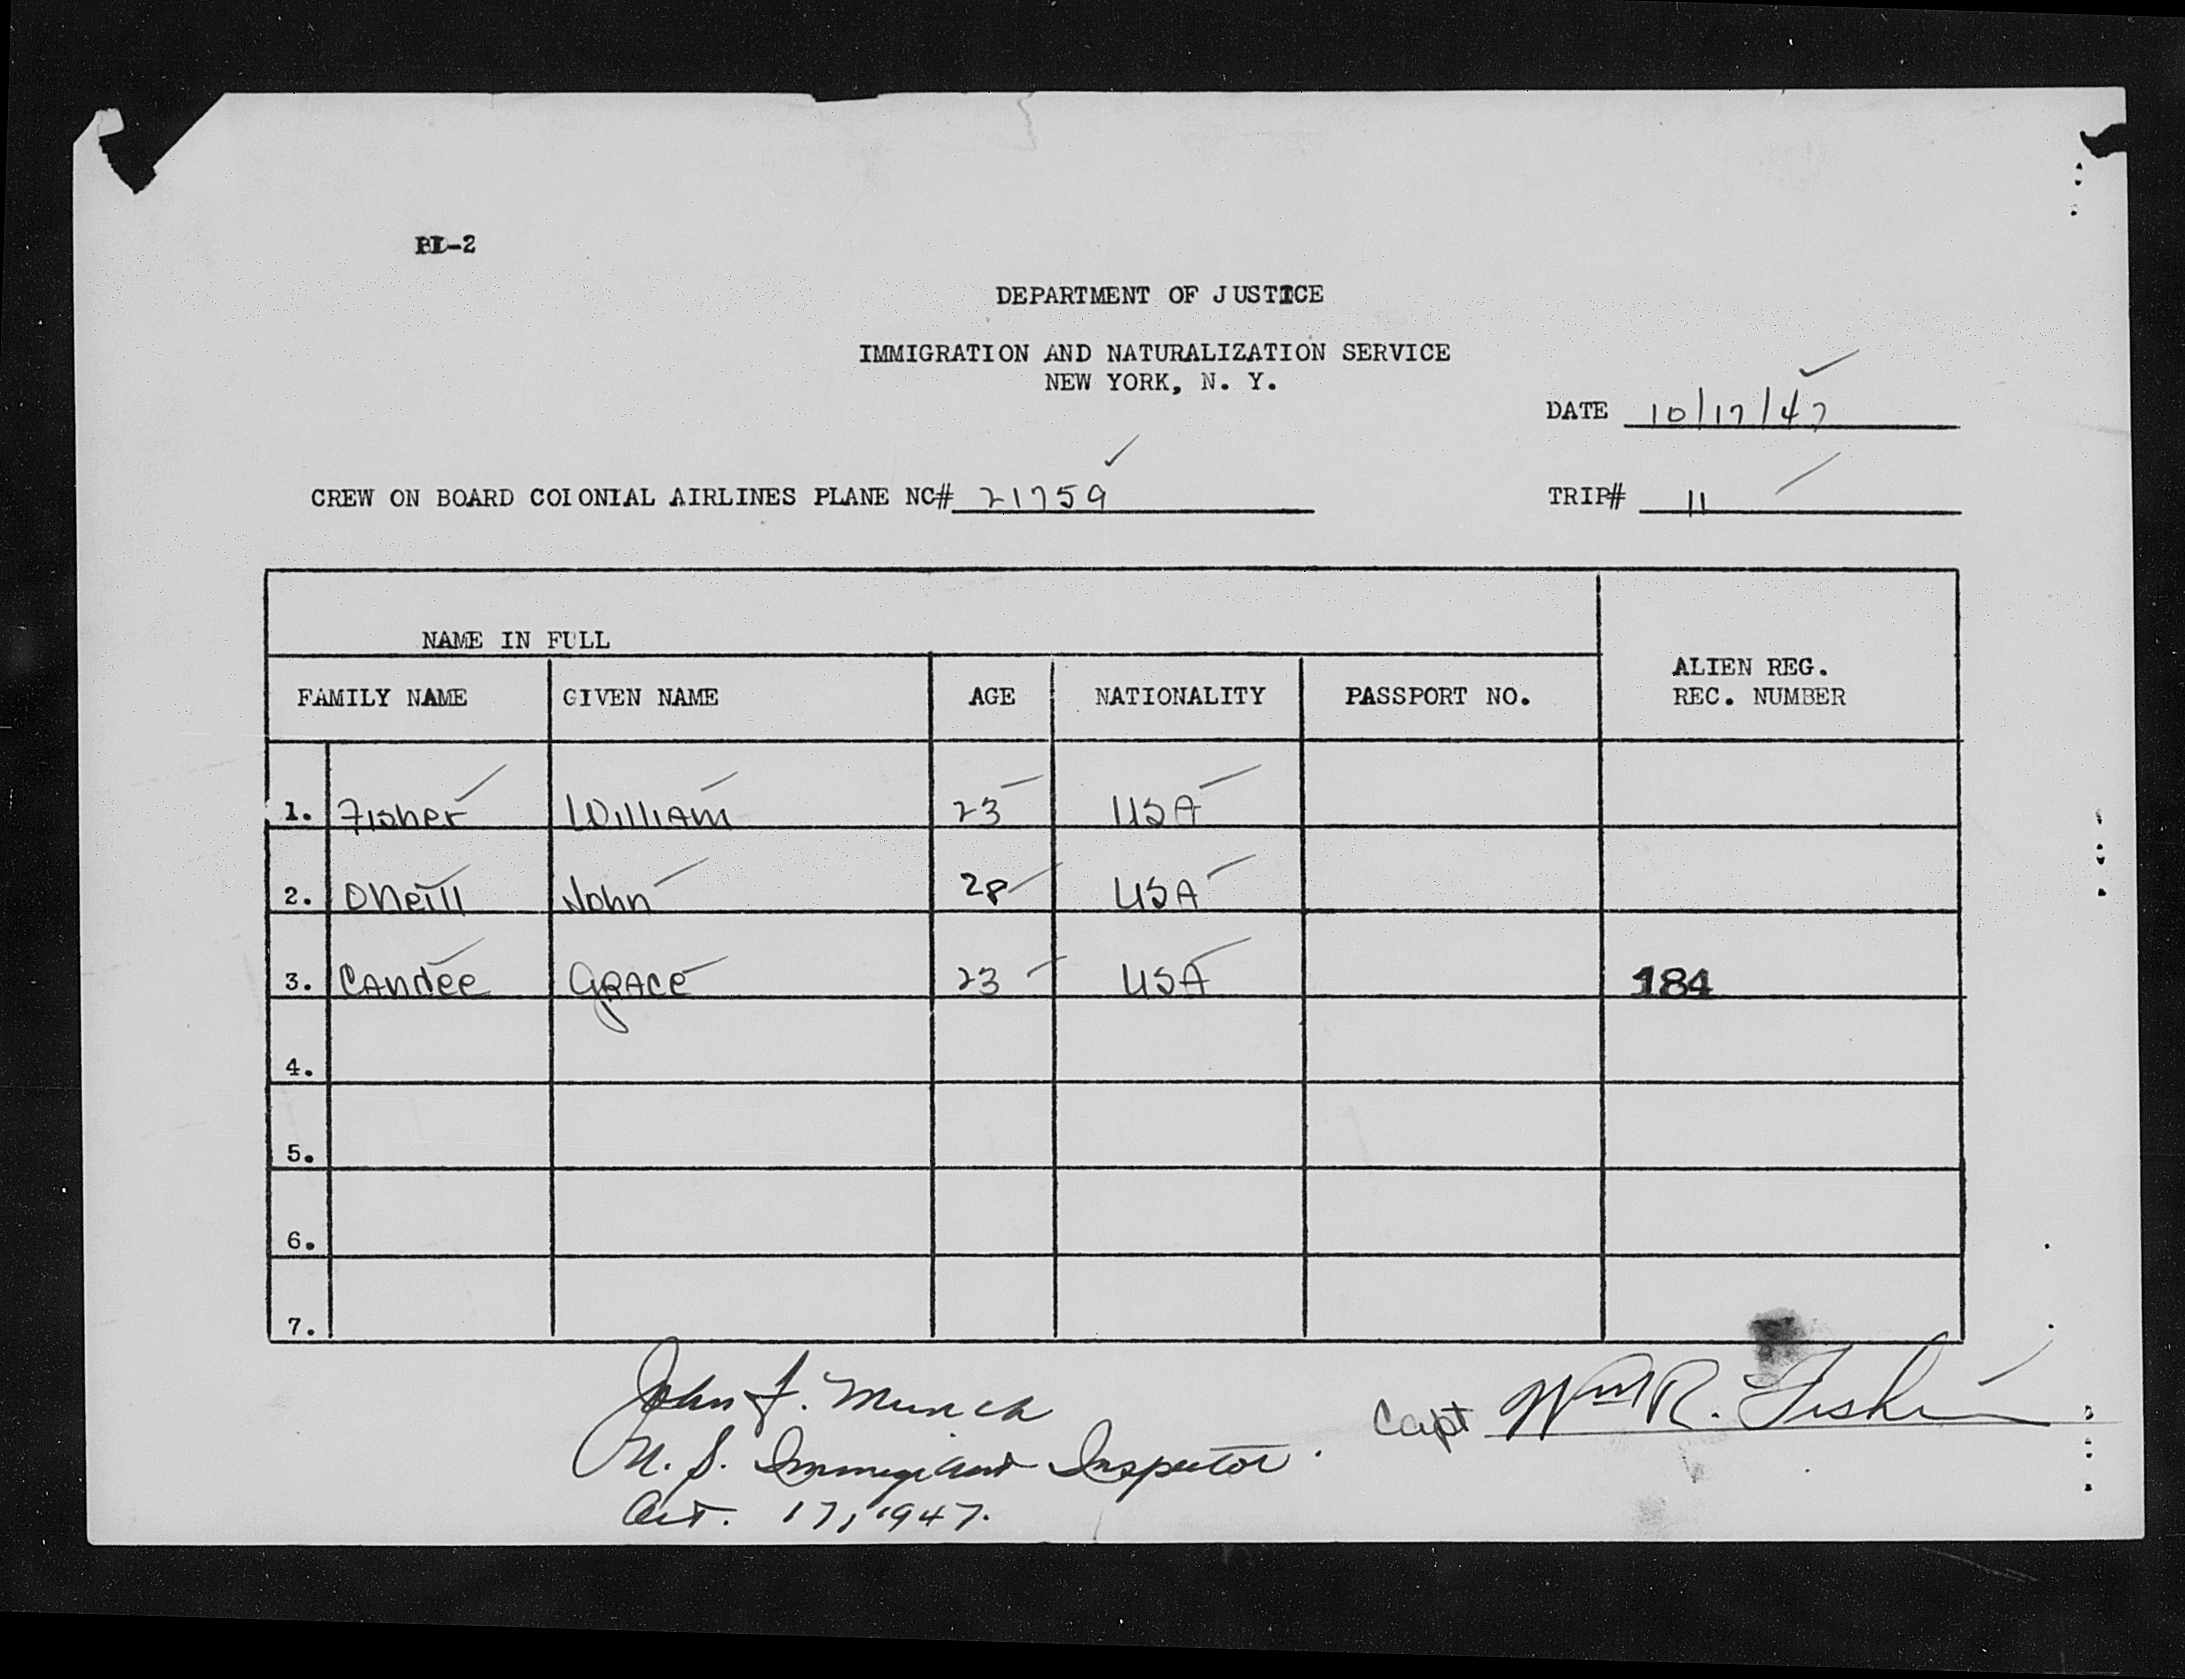 PL-2
DEPARTMENT OF JUSTICE
IMMIGRATION AND NATURALIZATION SERVICE
NEW YORK, N. Y.
DATE 10/17/47
CREW ON BOARD COLONIAL AIRLINES PLANE NC# 21759
TRIP# 11
NAME IN FULL
ALIEN REG.
REC. NUMBER
FAMILY NAME GIVEN NAME AGE NATIONALITY PASSPORT NO.
1. Fisher William 23 USA
2. ONeill John 28 USA
3. Candee Grace 23 USA 184
4.
5.
6.
7.
John J. Munch
Capt Wm R. Fisher
U. S. Immigrant Inspector.
Oct. 17, 1947.